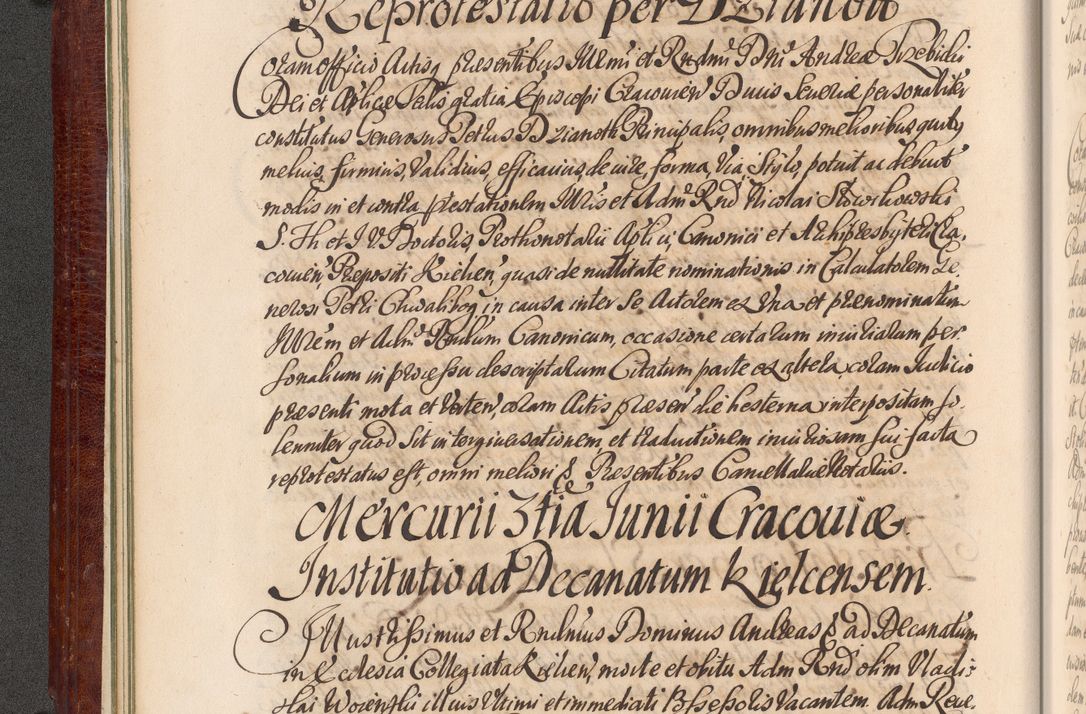 Reprotestatio per Dzianott
Coram officio Actisq praesentibus Illmi et Rndmi Dni Andreae Trzebicki
Dei et Aplicae Sedis gratia Episcopi Cracovien Ducis Severiae personaliter
constitutus Generosus Petrus Dzianoth Principalis, omnibus melioribus quibq
melius, firmius, validius, efficacius, de iure, forma, via, stylo, potuit ac debuit
modis in et contra protestationem Illris et Adm Rnd Nicolai Słowikowski
S. Th et I. V. Doctoris, Prothonotarii Aplici, Canonici et Archipresbyteri Cra,
covien, Praepositi Kielien, quasi de nullitate nominationis in Calculatorem Ge,
nerosi Petri Chwalibog in causa inter se Actorem ex una et praenominatum
Illrem et Adm Rndum Canonicum, occasione certarum iniuriarum per
sonalium in processu descriptarum Citatum parte ex altera, coram Iudicio
praesenti mota et verten, coram Actis praesen die hesterna interpositam so,
lenniter quod sit in tergiversationem et traductionem iniuriosam sui facta
reprotestatus est, omni meliori & Praesentibus Cancellariae Notariis.
Mercurii 3tia Iunii Cracoviae.
Institutio ad Decanatum Kielcensem.
Illustrissimus et Rndmus Dominus Andreas & ad Decanatum
in Ecclesia Collegiata Kielien, morte et obitu Adm Rnd olim Vladi,
slai Woienski illius ultimi et immediati Possessoris vacantem. Adm Reve,